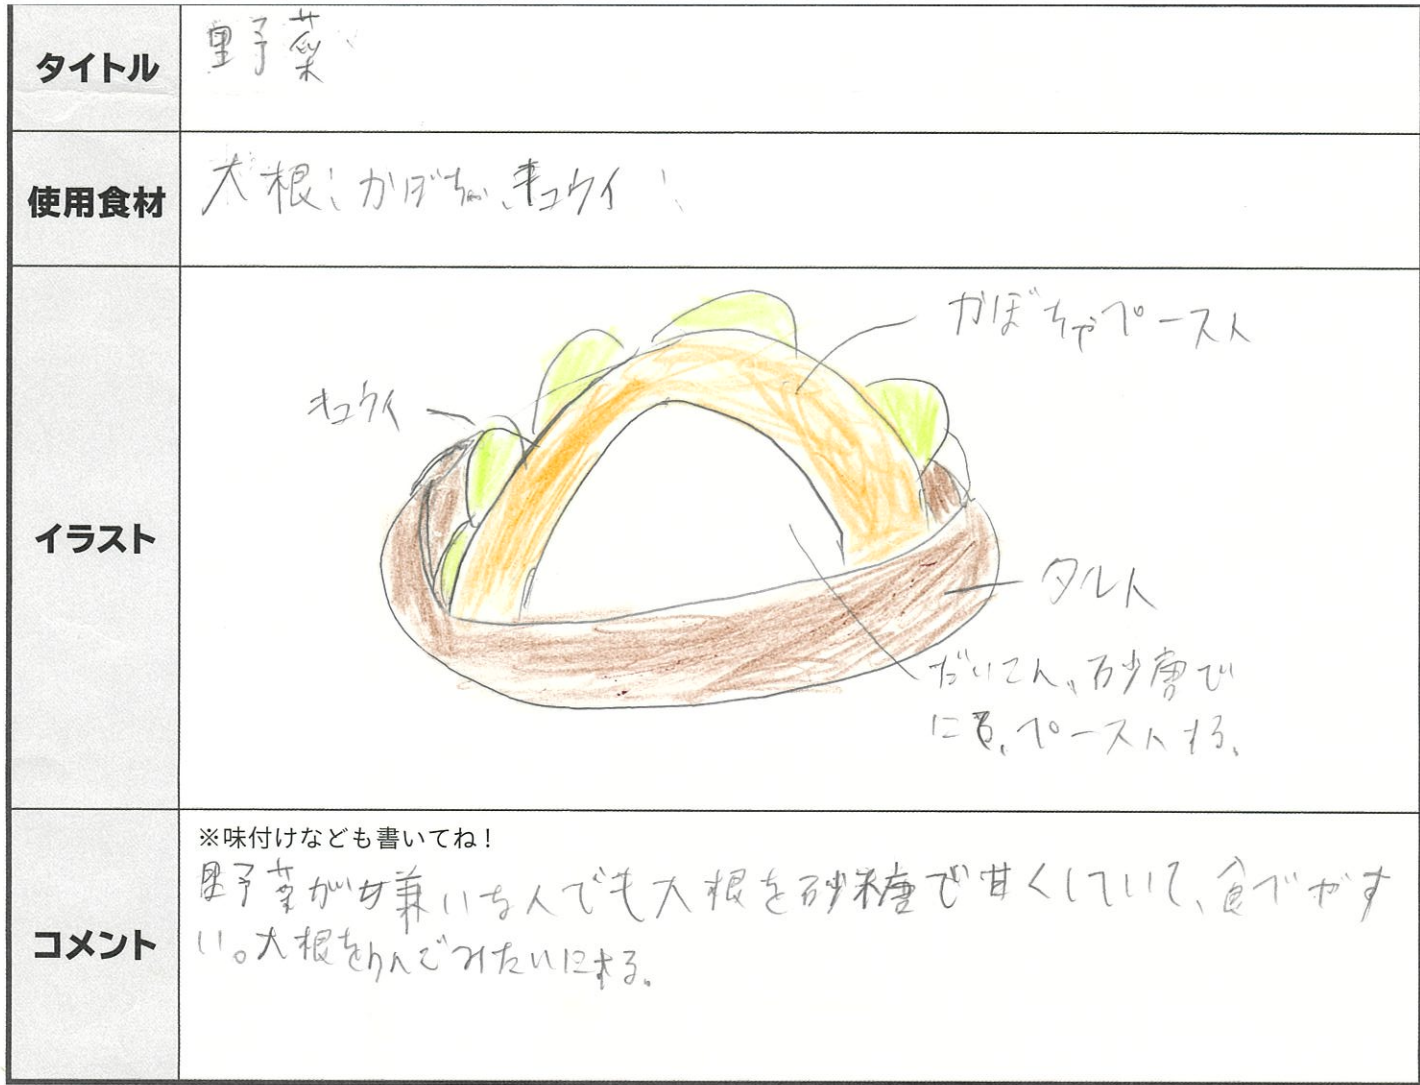 タイトル
野菜
使用食材
大根、かぼちゃ、キュウイ
イラスト
かぼちゃペースト
キュウイ
タルト
だいこん、砂唐で
にる、ペーストする、
コメント
※味付けなども書いてね！
野菜が嫌いな人でも大根を砂糖で甘くしていて、食べやす
い。大根をりんごみたいにする。